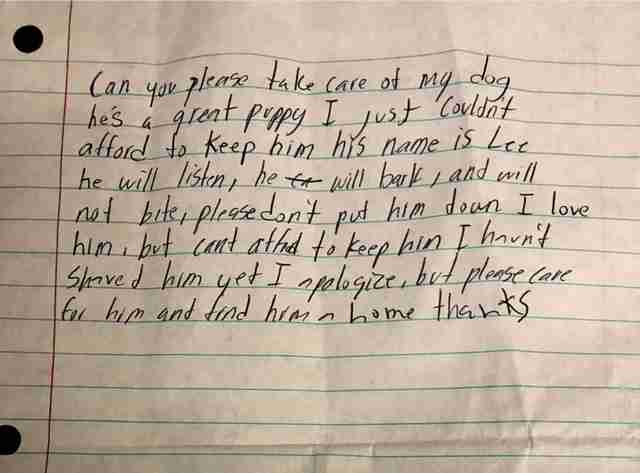 Can you please take care of my dog
he's a great puppy I just couldn't
afford to keep him his name is Lee
he will listen, he will bark, and will
not bite, please don't put him down I love
him, but cant affrd to keep him I havn't
shaved him yet I apologize, but please care
for him and find him a home thanks